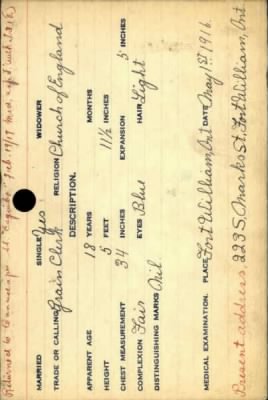 Returned to Canada per S. S. "Aquitic" Feb 19/19
MARRIED SINGLE Yes WIDOWER
TRADE OR CALLING Grain Clerk RELIGION Church of England
DESCRIPTION.
APPARENT AGE 18 YEARS MONTHS
HEIGHT 5 FEET 11½ INCHES
CHEST MEASUREMENT 34 INCHES EXPANSION 5 INCHES
COMPLEXION Fair EYES Blue HAIR Light
DISTINGUISHING MARKS Nil
MEDICAL EXAMINATION. PLACE Fort William, Ont DATE May 1st 1916.
Present address, 223 S. Marks St, Fort William, Ont